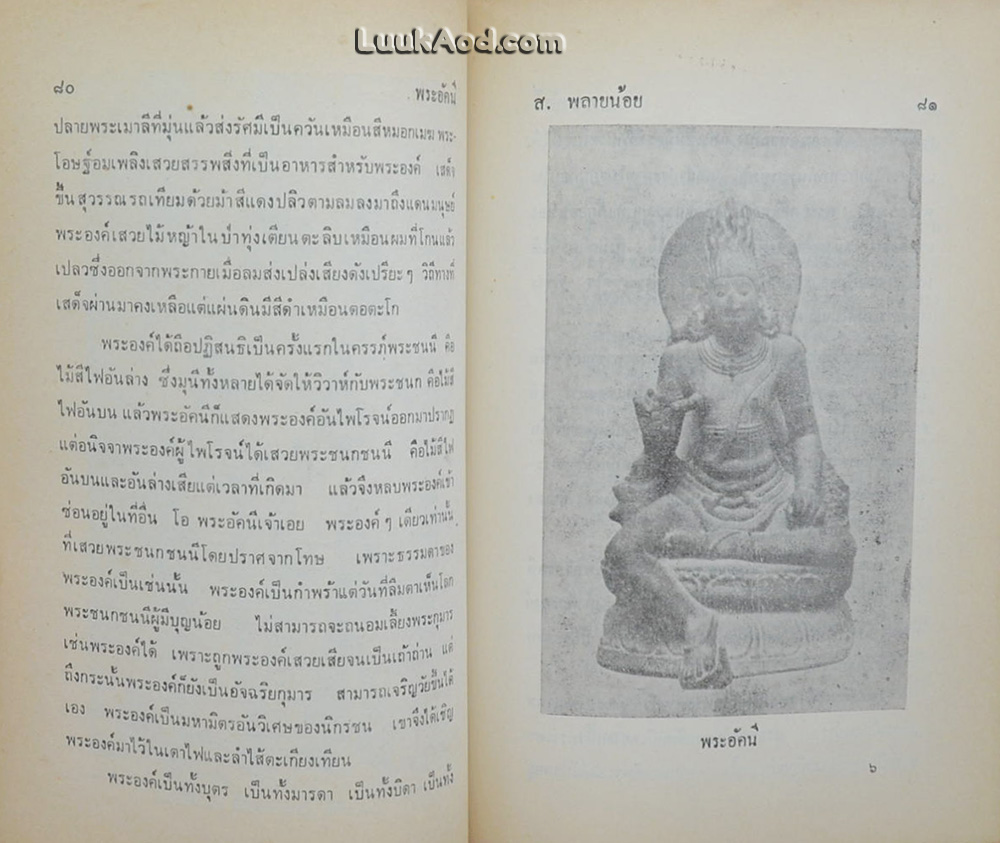 LuukAod.com
๘๐
พระอัคนี
ปลายพระเมาลีที่มุ่นแล้วส่งรัศมีเป็นควันเหมือนสีหมอกเมฆ พระ-
โอษฐ์อมเพลิงเสวยสรรพสิ่งที่เป็นอาหารสำหรับพระองค์ เสด็จ
ขึ้นสุวรรณรถเทียมด้วยม้าสีแดงปลิวตามลมลงมาถึงแดนมนุษย์
พระองค์เสวยไม้หญ้าในป่าทุ่งเตียนตะลิบเหมือนผมที่โกนแล้ว
เปลวซึ่งออกจากพระกายเมื่อลมส่งเปล่งเสียงดังเปรียะๆ วิถีทางที่
เสด็จผ่านมาคงเหลือแต่แผ่นดินมีสีดำเหมือนตอตะโก
พระองค์ได้ถือปฏิสนธิเป็นครั้งแรกในครรภ์พระชนนี คือ
ไม้สีไฟอันล่าง ซึ่งมุนีทั้งหลายได้จัดให้วิวาห์กับพระชนก คือไม้สี
ไฟอันบน แล้วพระอัคนีก็แสดงพระองค์อันไพโรจน์ออกมาปรากฏ
แต่อนิจจาพระองค์ผู้ไพโรจน์ได้เสวยพระชนกชนนี คือไม้สีไฟ
อันบนและอันล่างเสียแต่เวลาที่เกิดมา แล้วจึงหลบพระองค์เข้า
ซ่อนอยู่ในที่อื่น โอ พระอัคนีเจ้าเอย พระองค์ๆ เดียวเท่านั้น
ที่เสวยพระชนกชนนีโดยปราศจากโทษ เพราะธรรมดาของ
พระองค์เป็นเช่นนั้น พระองค์เป็นกำพร้าแต่วันที่ลืมตาเห็นโลก
พระชนกชนนีผู้มีบุญน้อย ไม่สามารถจะถนอมเลี้ยงพระกุมาร
เช่นพระองค์ได้ เพราะถูกพระองค์เสวยเสียจนเป็นเถ้าถ่าน แต่
ถึงกระนั้นพระองค์ก็ยังเป็นอัจฉริยกุมาร สามารถเจริญวัยขึ้นได้
เอง พระองค์เป็นมหามิตรอันวิเศษของนิกรชน เขาจึงได้เชิญ
พระองค์มาไว้ในเตาไฟและลำไส้ตะเกียงเทียน
พระองค์เป็นทั้งบุตร เป็นทั้งมารดา เป็นทั้งบิดา เป็นทั้ง
ส. พลายน้อย
๘๑
พระอัคนี
๖